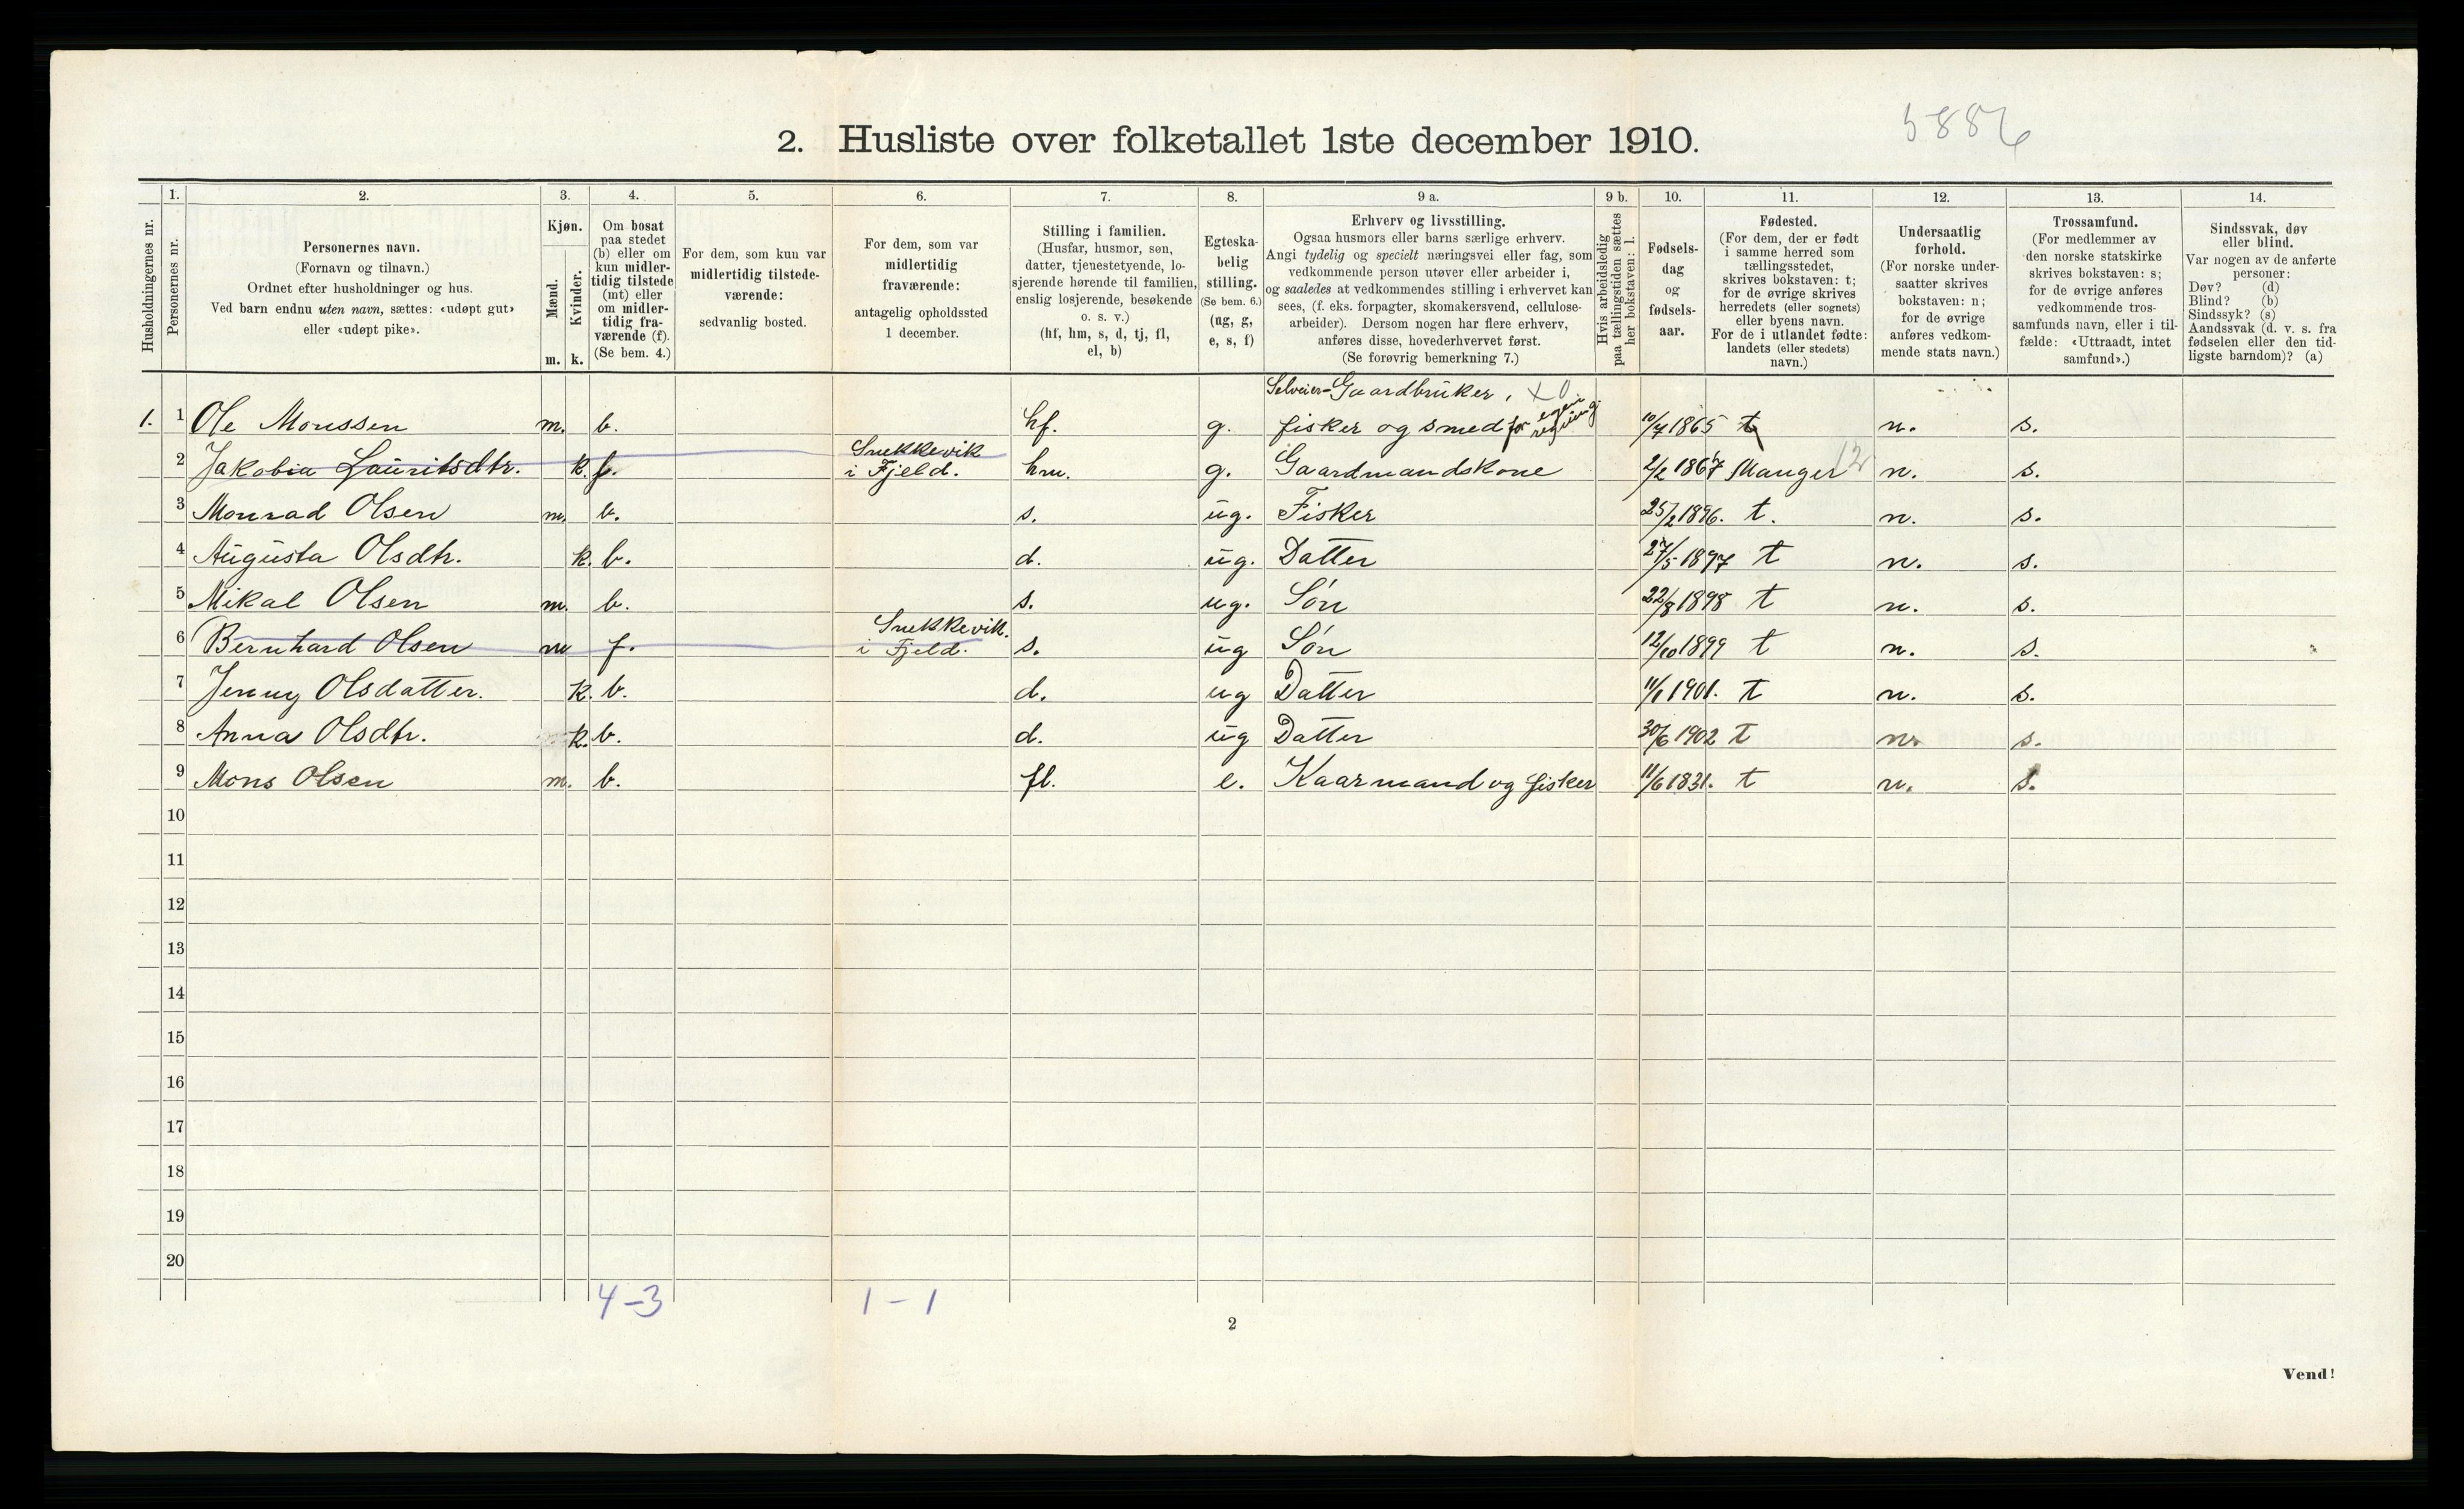 5886
2. Husliste over folketallet 1ste december 1910.
Husholdningernes nr.
1.
Personernes nr.
2.
Personernes navn.
(Fornavn og tilnavn.)
Ordnet efter husholdninger og hus.
Ved barn endnu uten navn, sættes: «udøpt gut»
eller «udøpt pike».
3.
Kjøn.
Mænd.
Kvinder.
m. k.
4.
Om bosat
paa stedet
(b) eller om
kun midler-
tidig tilstede
(mt) eller
om midler-
tidig fra-
værende (f).
(Se bem. 4.)
5.
For dem, som kun var
midlertidig tilstede-
værende:
sedvanlig bosted.
6.
For dem, som var
midlertidig
fraværende:
antagelig opholdssted
1 december.
7.
Stilling i familien.
(Husfar, husmor, søn,
datter, tjenestetyende, lo-
sjerende hørende til familien,
enslig losjerende, besøkende
o. s. v.)
(hf, hm, s, d, tj, fl,
el, b)
8.
Egteska-
belig
stilling.
(Se bem. 6.)
(ug, g,
e, s, f)
9 a.
Erhverv og livsstilling.
Ogsaa husmors eller barns særlige erhverv.
Angi tydelig og specielt næringsvei eller fag, som
vedkommende person utøver eller arbeider i,
og saaledes at vedkommendes stilling i erhvervet kan
sees, (f. eks. forpagter, skomakersvend, cellulose-
arbeider). Dersom nogen har flere erhverv,
anføres disse, hovederhvervet først.
(Se forøvrig bemerkning 7.)
9 b.
Hvis arbeidsledig
paa tællingstiden sættes
her bokstaven: l.
10.
Fødsels-
dag
og
fødsels-
aar.
11.
Fødested.
(For dem, der er født
i samme herred som
tællingsstedet,
skrives bokstaven: t;
for de øvrige skrives
herredets (eller sognets)
eller byens navn.
For de i utlandet fødte:
landets (eller stedets)
navn.)
12.
Undersaatlig
forhold.
(For norske under-
saatter skrives
bokstaven: n;
for de øvrige
anføres vedkom-
mende stats navn.)
13.
Trossamfund.
(For medlemmer av
den norske statskirke
skrives bokstaven: s;
for de øvrige anføres
vedkommende tros-
samfunds navn, eller i til-
fælde: «Uttraadt, intet
samfund».)
14.
Sindssvak, døv
eller blind.
Var nogen av de anførte
personer:
Døv? (d)
Blind? (b)
Sindssyk? (s)
Aandssvak (d. v. s. fra
fødselen eller den tid-
ligste barndom)? (a)
Selveier-Gaardbruker, x0
1. 1 Ole Monssen m. b. hf. g. fisker og smed for egen regning 10/4 1865 t n. s.
Snekkevik
2 Jakobia Lauritsdtr. k. f. i Fjeld. hm. g. Gaardmandskone 2/2 1867 Manger 12 n. s.
3 Monrad Olsen m. b. s. ug. Fisker 25/2 1896. t. n. s.
4 Augusta Olsdtr. k. b. d. ug. Datter 27/5 1897 t n. s.
5 Mikal Olsen m. b. s. ug. Søn 22/8 1898 t n. s.
Snekkevik.
6 Bernhard Olsen m f. i Fjeld. s. ug Søn 12/10 1899 t n. s.
7 Jenny Olsdatter. k. b. d. ug Datter 11/1 1901. t n. s.
8 Anna Olsdtr. k. b. d. ug Datter 30/6 1902 t n. s.
9 Mons Olsen m. b. fl. e. Kaarmand og fisker 11/6 1831. t n. s.
10
11
12
13
14
15
16
17
18
19
20
4-3 1-1
2
Vend!